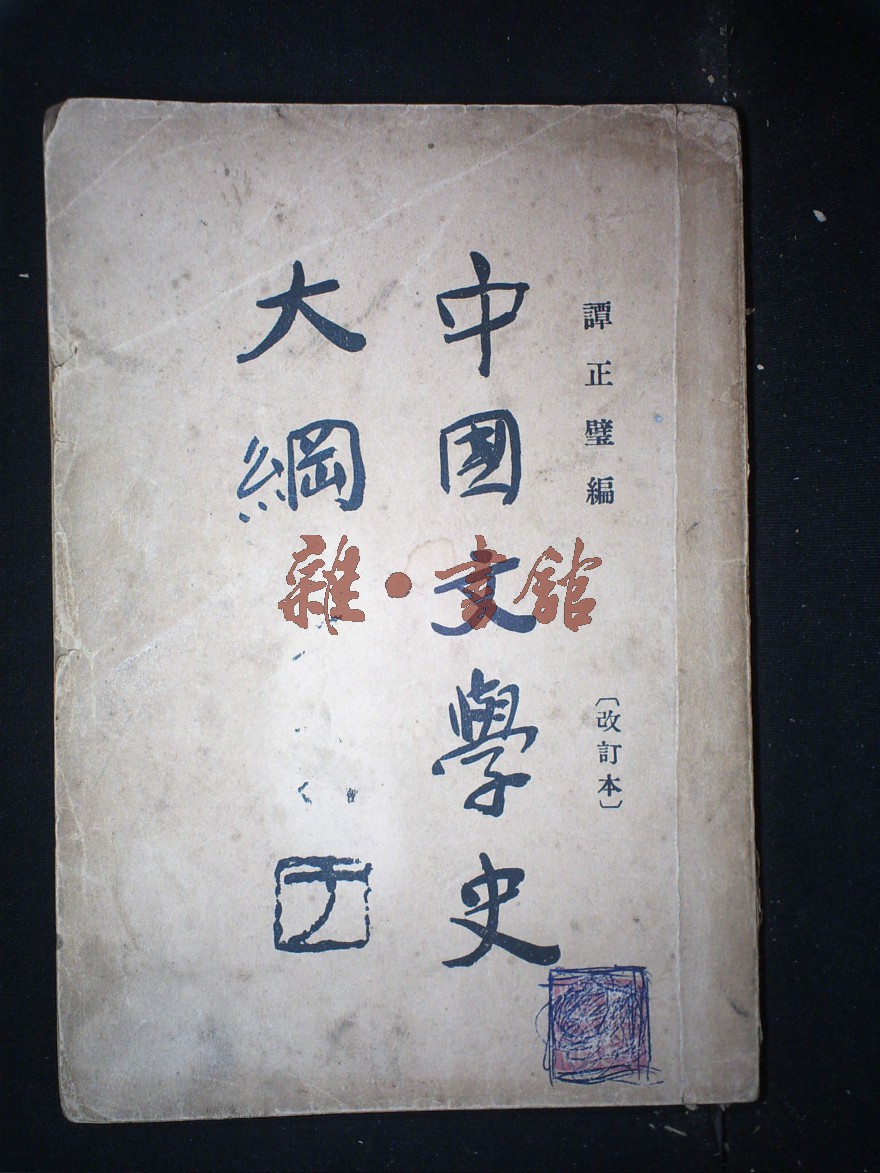 譚正璧編
〔改訂本〕
中國文學史
大綱
雜·書館